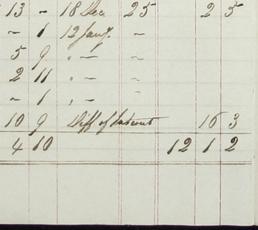 13 - 18 Dec 25 2 5
~ 1 12 Jany. ~
5 9 " - ~
2 11 " - ~
~ 1 " - ~
10 9 Diff of Interest 16 3
4 10 12 1 2